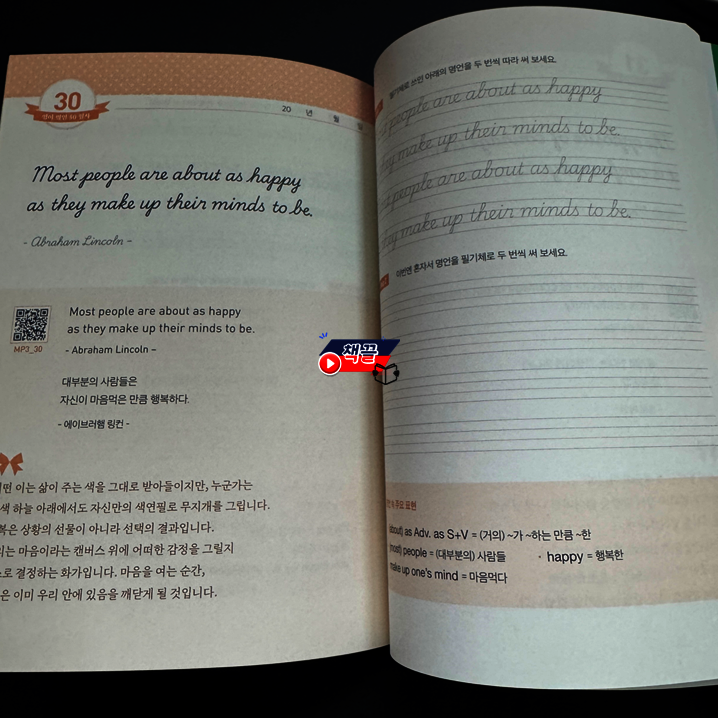 30
영어 명언 30 필사
20 년 월 일
Most people are about as happy
as they make up their minds to be.
- Abraham Lincoln -
MP3_30
Most people are about as happy
as they make up their minds to be.
- Abraham Lincoln -
대부분의 사람들은
자신이 마음먹은 만큼 행복하다.
- 에이브러햄 링컨 -
이는 삶이 주는 색을 그대로 받아들이지만, 누군가는
색 하늘 아래에서도 자신만의 색연필로 무지개를 그립니다.
상황의 선물이 아니라 선택의 결과입니다.
마음이라는 캔버스 위에 어떠한 감정을 그릴지
결정하는 화가입니다. 마음을 여는 순간,
이미 우리 안에 있음을 깨닫게 될 것입니다.
필기체로 쓰인 아래의 명언을 두 번씩 따라 써 보세요.
people are about as happy
make up their minds to be.
people are about as happy
make up their minds to be.
이번엔 혼자서 명언을 필기체로 두 번씩 써 보세요.
책끌
주요 표현
(about) as Adv. as S+V = (거의) ~가 ~하는 만큼 ~한
(most) people = (대부분의) 사람들 · happy = 행복한
make up one's mind = 마음먹다